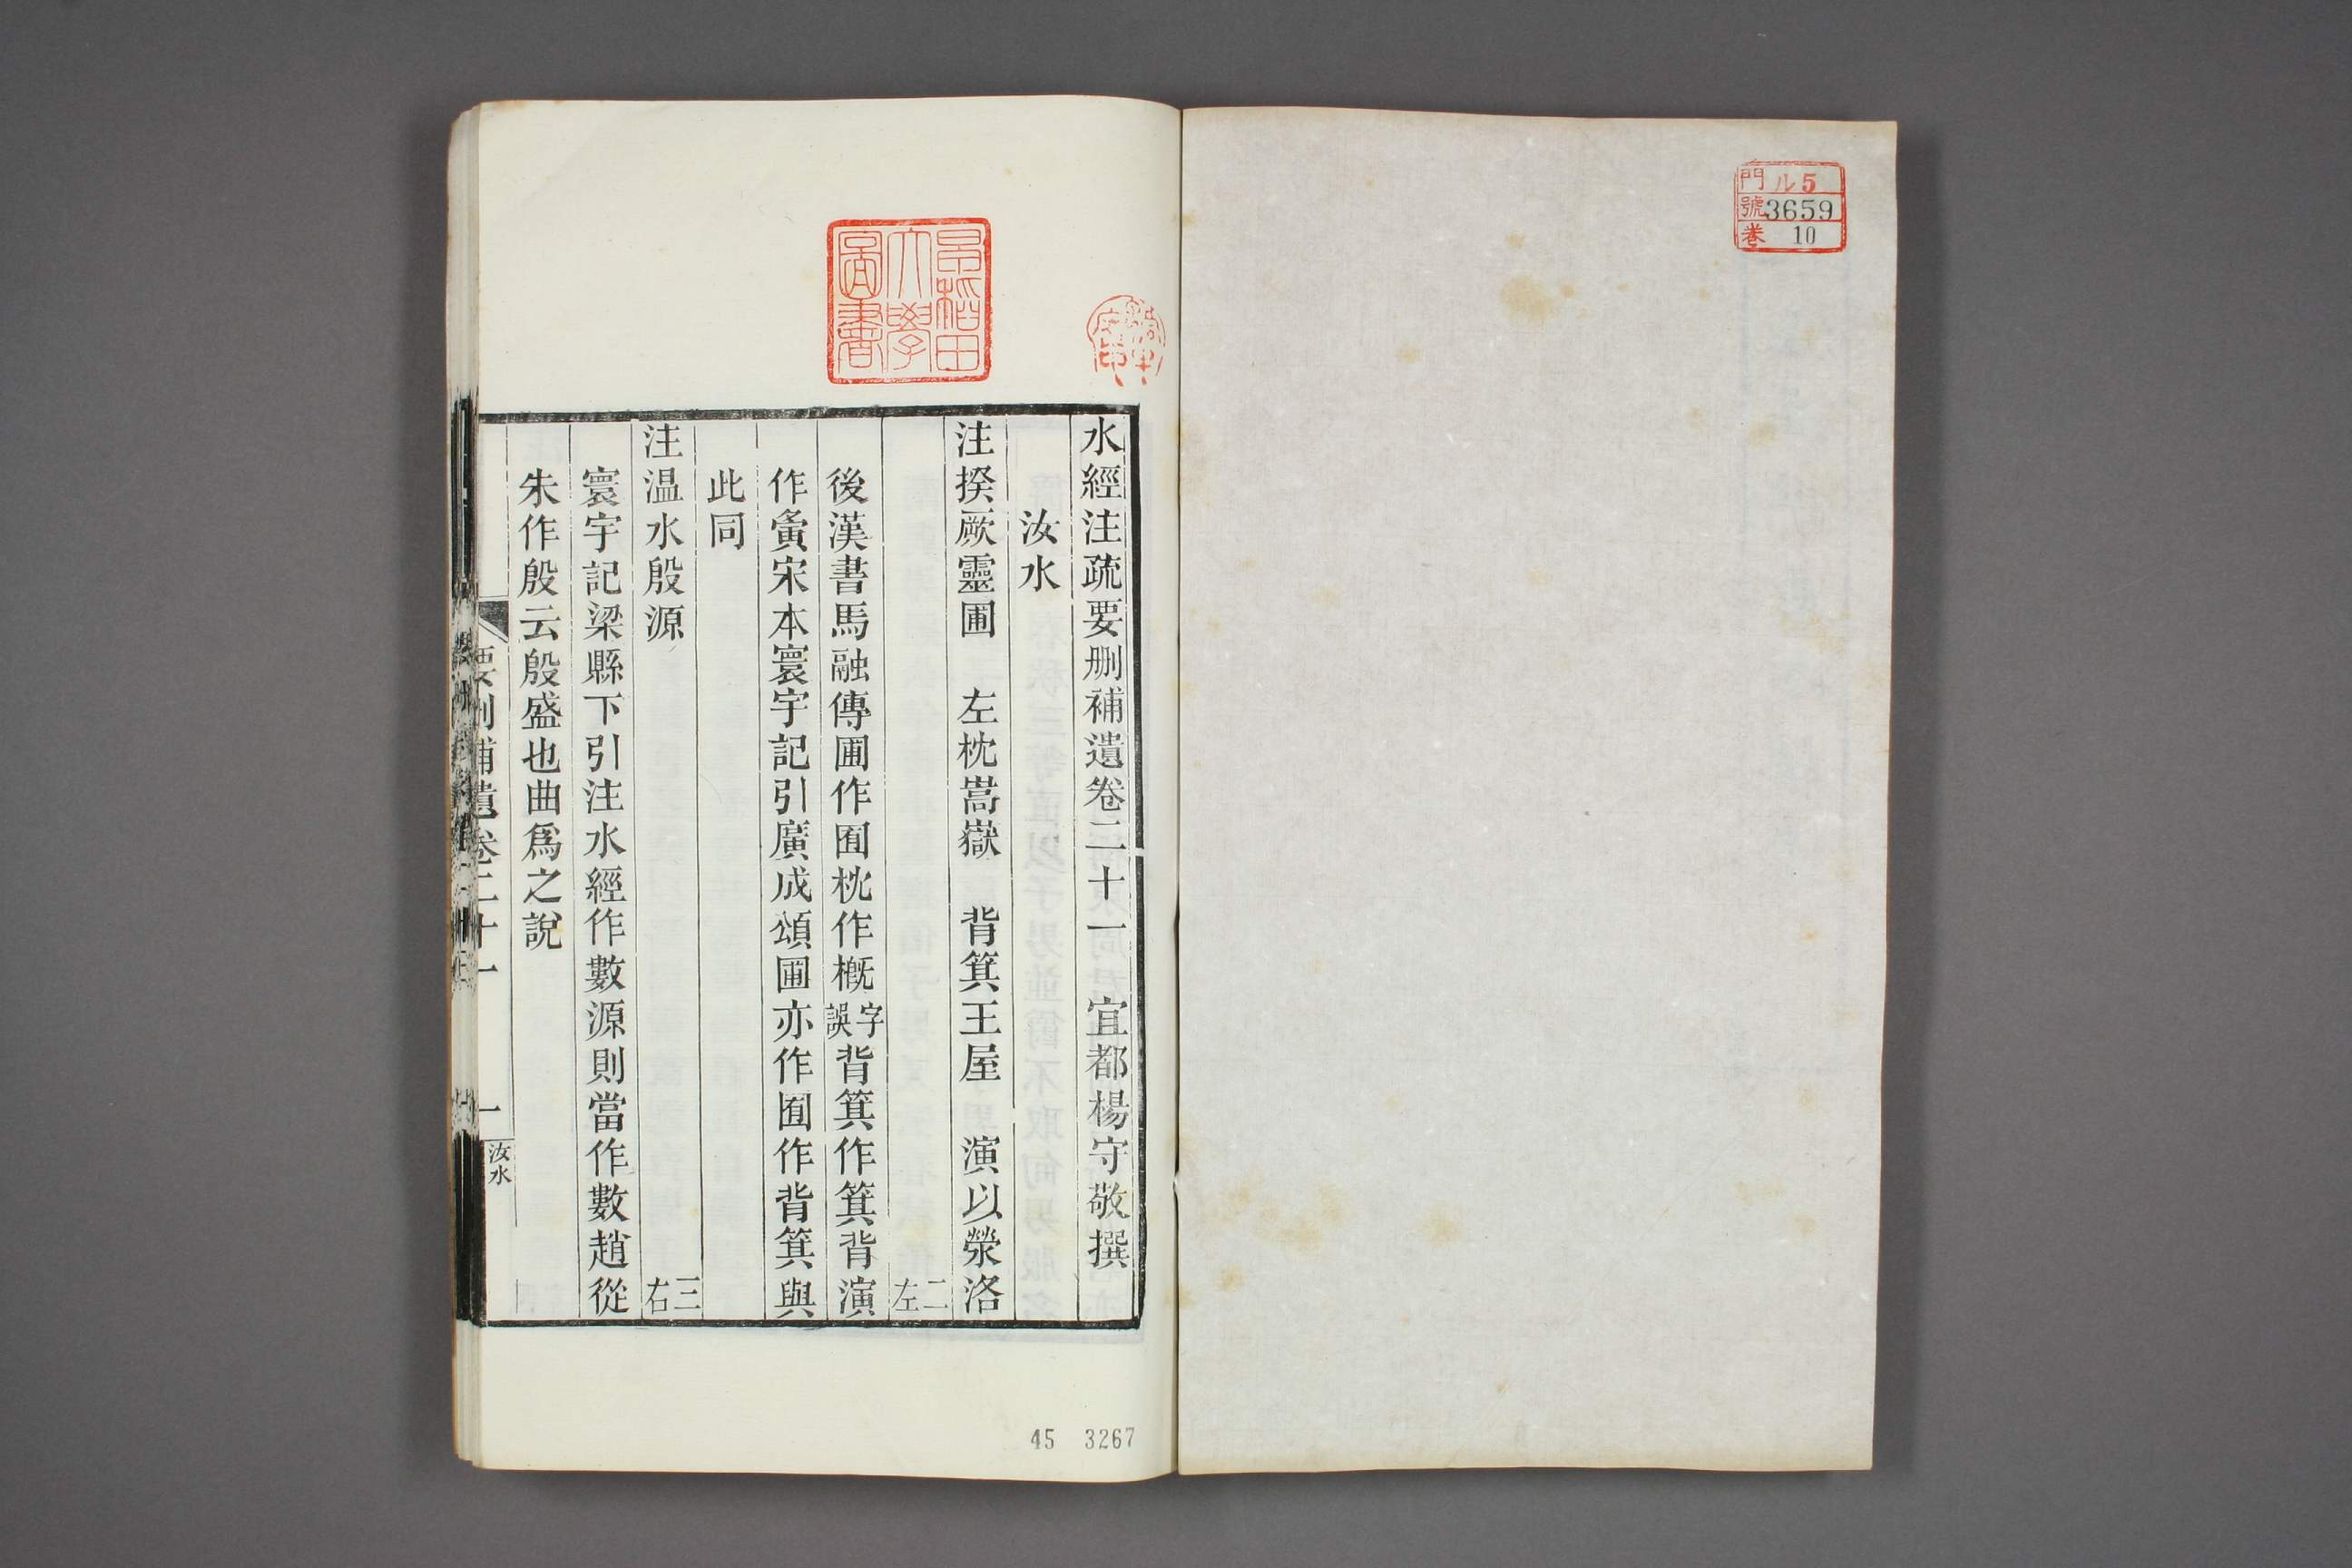 門 ル5
號 3659
巻 10
早稻田
大學
圖書
水經注疏要刪補遺卷二十一 宜都楊守敬撰
汝水
注揆厥靈圃 左枕嵩嶽 背箕王屋 演以滎洛
二左
後漢書馬融傳圃作囿枕作概字誤背箕作箕背演
作夤宋本寰宇記引廣成頌圃亦作囿作背箕與
此同
注温水殷源 三右
寰宇記梁縣下引注水經作數源則當作數趙從
朱作殷云殷盛也曲爲之說
要刪補遺卷二十一 一 汝水
45 3267